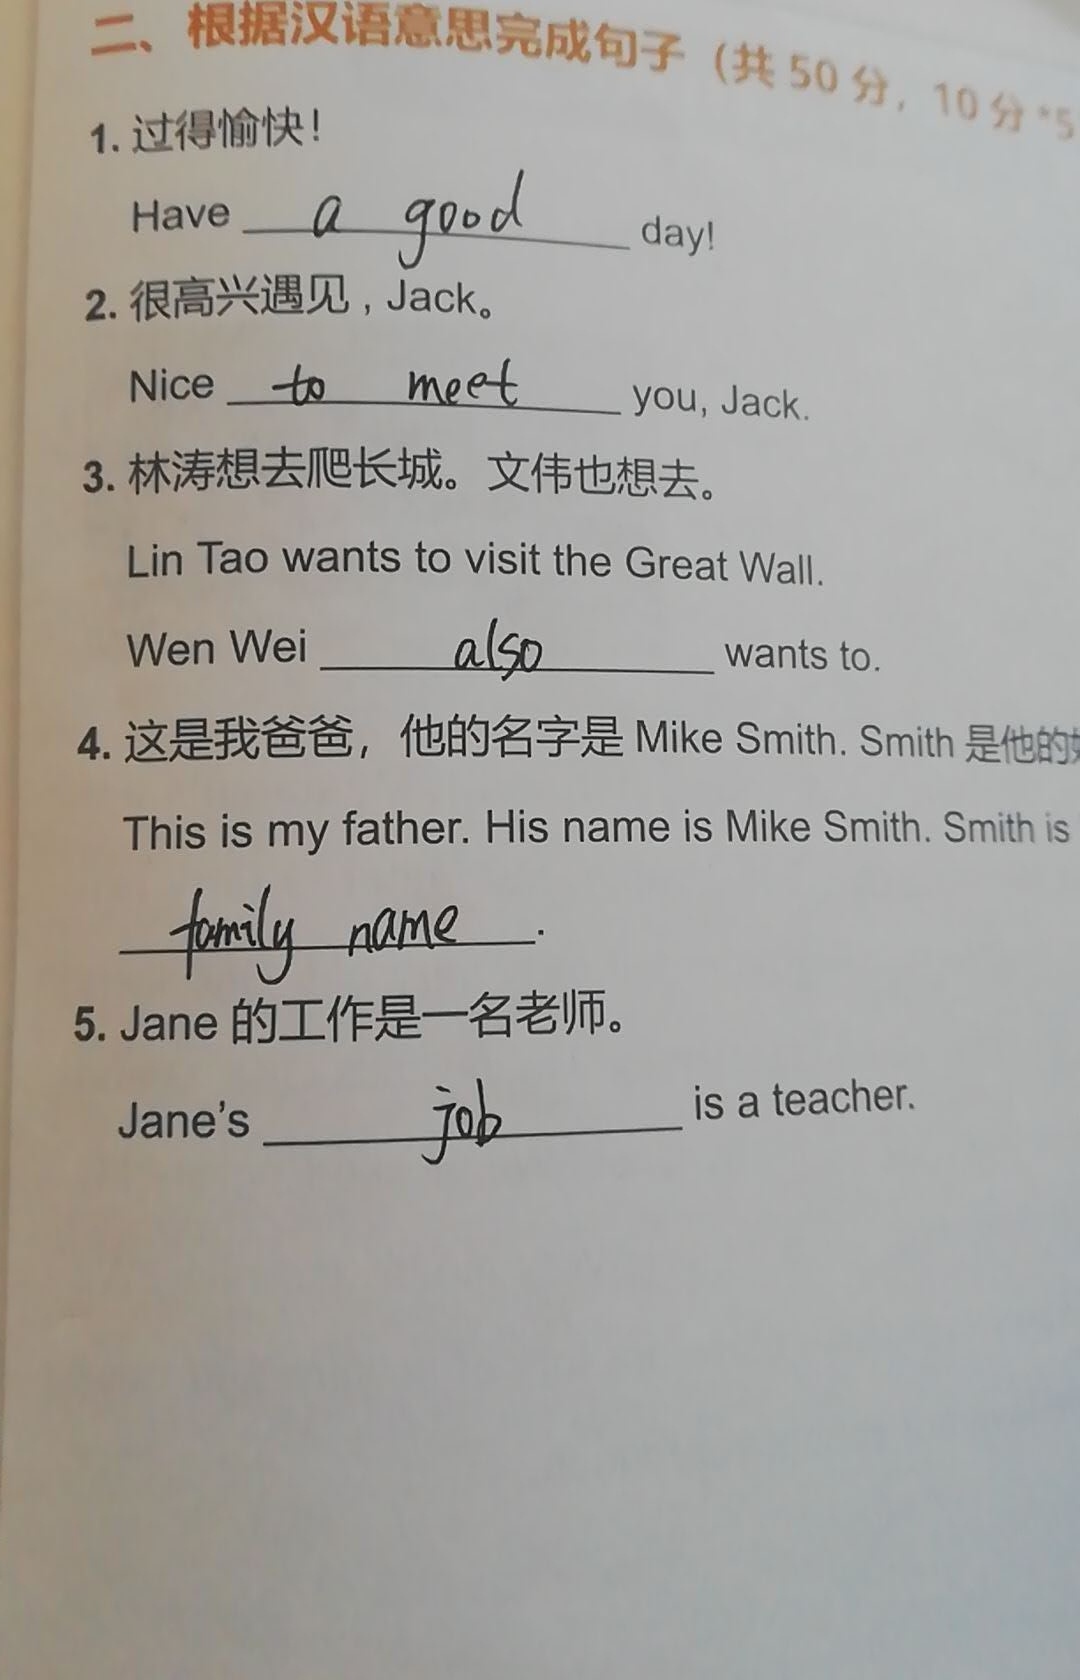 二、根据汉语意思完成句子（共 50 分，10 分 *5
1. 过得愉快！
Have a good day!
2. 很高兴遇见，Jack。
Nice to meet you, Jack.
3. 林涛想去爬长城。文伟也想去。
Lin Tao wants to visit the Great Wall.
Wen Wei also wants to.
4. 这是我爸爸，他的名字是 Mike Smith. Smith 是他的
This is my father. His name is Mike Smith. Smith is
family name.
5. Jane 的工作是一名老师。
Jane's job is a teacher.